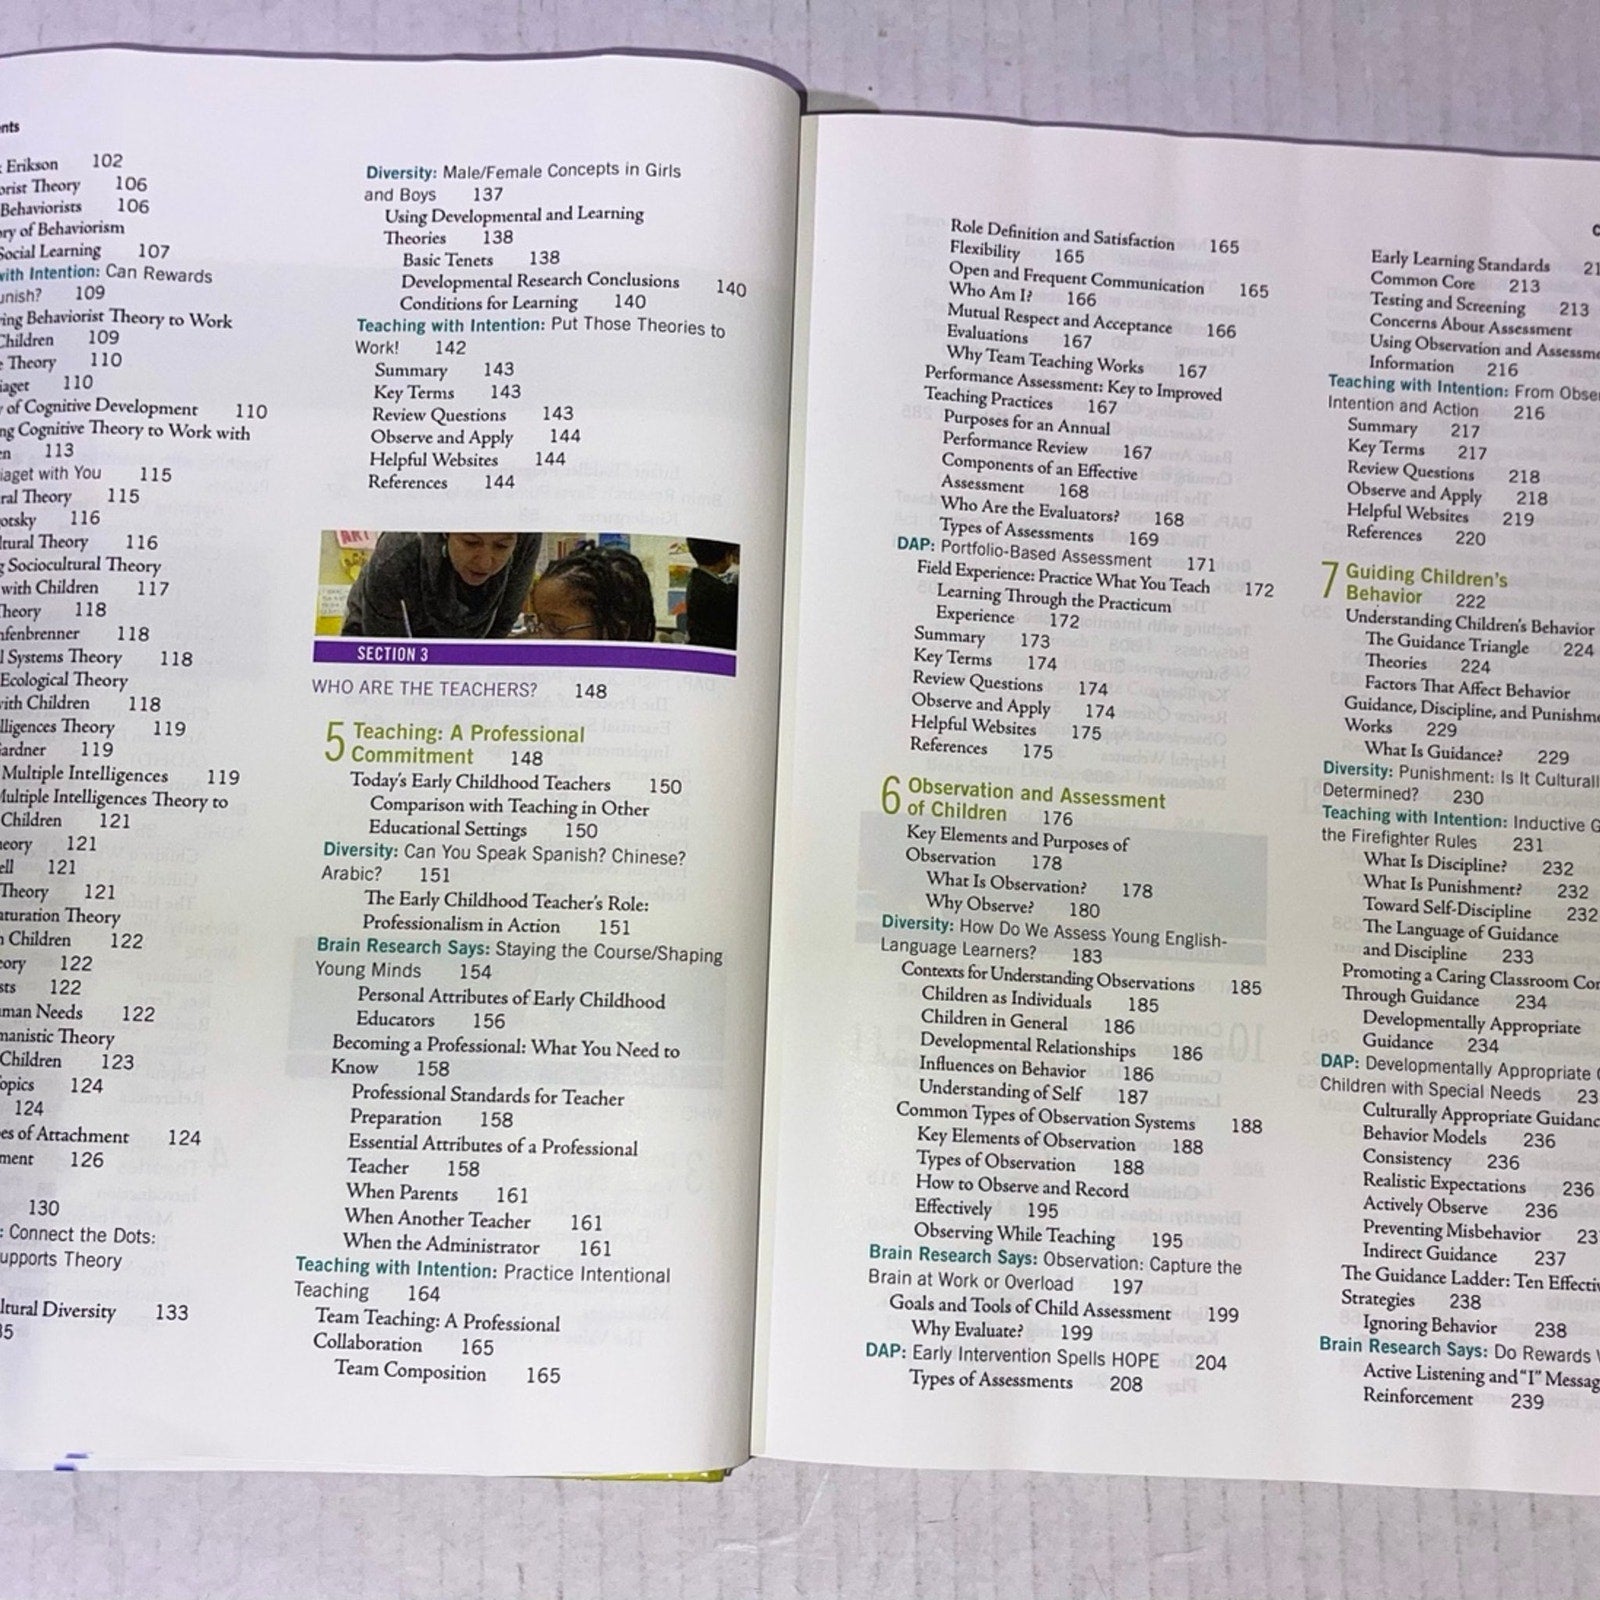 Erikson 102
Theory 106
Behaviorists 106
of Behaviorism
Social Learning 107
with Intention: Can Rewards
109
Behaviorist Theory to Work
Children 109
Theory 110
110
of Cognitive Development 110
Cognitive Theory to Work with
113
with You 115
Theory 115
116
Theory 116
Sociocultural Theory
with Children 117
Theory 118
118
Systems Theory 118
Ecological Theory
with Children 118
Theory 119
119
Multiple Intelligences 119
Multiple Intelligences Theory to
Children 121
121
121
Theory 121
Theory
Children 122
122
122
Needs 122
Theory
Children 123
124
124
of Attachment 124
126
130
: Connect the Dots:
Theory
Diversity 133
Diversity: Male/Female Concepts in Girls
and Boys 137
Using Developmental and Learning
Theories 138
Basic Tenets 138
Developmental Research Conclusions 140
Conditions for Learning 140
Teaching with Intention: Put Those Theories to
Work! 142
Summary 143
Key Terms 143
Review Questions 143
Observe and Apply 144
Helpful Websites 144
References 144
ART
SECTION 3
WHO ARE THE TEACHERS? 148
5 Teaching: A Professional
Commitment 148
Today's Early Childhood Teachers 150
Comparison with Teaching in Other
Educational Settings 150
Diversity: Can You Speak Spanish? Chinese?
Arabic? 151
The Early Childhood Teacher's Role:
Professionalism in Action 151
Brain Research Says: Staying the Course/Shaping
Young Minds 154
Personal Attributes of Early Childhood
Educators 156
Becoming a Professional: What You Need to
Know 158
Professional Standards for Teacher
Preparation 158
Essential Attributes of a Professional
Teacher 158
When Parents 161
When Another Teacher 161
When the Administrator 161
Teaching with Intention: Practice Intentional
Teaching 164
Team Teaching: A Professional
Collaboration 165
Team Composition 165
Role Definition and Satisfaction 165
Flexibility 165
Open and Frequent Communication 165
Who Am I? 166
Mutual Respect and Acceptance 166
Evaluations 167
Why Team Teaching Works 167
Performance Assessment: Key to Improved
Teaching Practices 167
Purposes for an Annual
Performance Review 167
Components of an Effective
Assessment 168
Who Are the Evaluators? 168
Types of Assessments 169
DAP: Portfolio-Based Assessment 171
Field Experience: Practice What You Teach 172
Learning Through the Practicum
Experience 172
Summary 173
Key Terms 174
Review Questions 174
Observe and Apply 174
Helpful Websites 175
References 175
6 Observation and Assessment
of Children 176
Key Elements and Purposes of
Observation 178
What Is Observation? 178
Why Observe? 180
Diversity: How Do We Assess Young English-
Language Learners? 183
Contexts for Understanding Observations 185
Children as Individuals 185
Children in General 186
Developmental Relationships 186
Influences on Behavior 186
Understanding of Self 187
Common Types of Observation Systems 188
Key Elements of Observation 188
Types of Observation 188
How to Observe and Record
Effectively 195
Observing While Teaching 195
Brain Research Says: Observation: Capture the
Brain at Work or Overload 197
Goals and Tools of Child Assessment 199
Why Evaluate? 199
DAP: Early Intervention Spells HOPE 204
Types of Assessments 208
Early Learning Standards
Common Core 213
Testing and Screening 213
Concerns About Assessment
Using Observation and
Information 216
Teaching with Intention: From
Intention and Action 216
Summary 217
Key Terms 217
Review Questions 218
Observe and Apply 218
Helpful Websites 219
References 220
7 Guiding Children's
Behavior 222
Understanding Children's Behavior
The Guidance Triangle 224
Theories 224
Factors That Affect Behavior
Guidance, Discipline, and
Works 229
What Is Guidance? 229
Diversity: Punishment: Is It
Determined? 230
Teaching with Intention: Inductive
the Firefighter Rules 231
What Is Discipline? 232
What Is Punishment? 232
Toward Self-Discipline 232
The Language of Guidance
and Discipline 233
Promoting a Caring Classroom
Through Guidance 234
Developmentally Appropriate
Guidance 234
DAP: Developmentally Appropriate
Children with Special Needs
Culturally Appropriate
Behavior Models 236
Consistency 236
Realistic Expectations 236
Actively Observe 236
Preventing Misbehavior
Indirect Guidance 237
The Guidance Ladder: Ten
Strategies 238
Ignoring Behavior 238
Brain Research Says: Do Rewards
Active Listening and "I"
Reinforcement 239